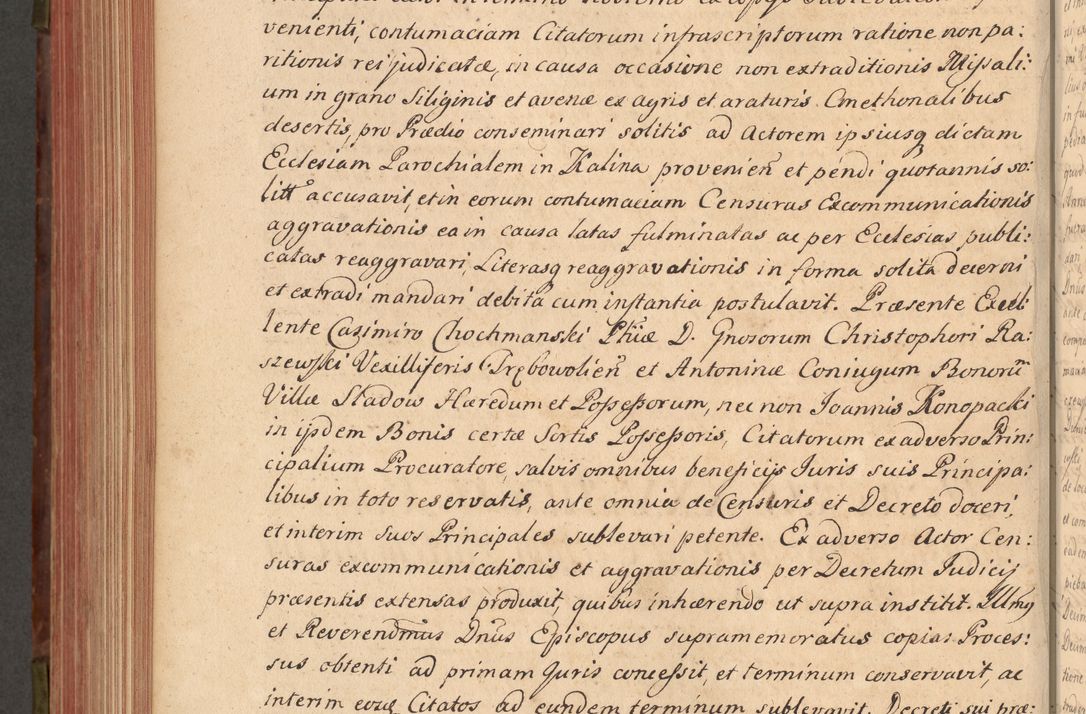 venienti, contumaciam Citatorum infrascriptorum ratione non pa:
ritionis rei judicatæ, in causa occasione non extraditionis Missali:
um in grano Siliginis et avenæ ex agris et araturis Cmethonalibus
desertis, pro Prædio conseminari solitis ad Actorem ipsiusq dictam
Ecclesiam Parochialem in Kalina provenien et pendi quotannis so:
litt accusavit, et in eorum contumaciam Censuras Excommunicationis
aggravationis ea in causa latas fulminatas ac per Ecclesias publi:
catas reaggravari, Literasq reaggravationis in forma solita decerni
et extradi mandari debita cum instantia postulavit. Præsente Excel:
lente Casimiro Chochmanski Phiæ D. Gnosorum Christophori Ra:
szewski Vexilliferis Trębowolien et Antoninæ Coniugum Bonorū
Villæ Sladow Hæredum et Possessorum, nec non Joannis Konopacki
in ijsdem Bonis certæ Sortis Possessoris, Citatorum ex adverso Prin:
cipalium Procuratore, salvis omnibus beneficijs Juris suis Principa:
libus in toto reservatis, ante omnia de Censuris et Decreto doceri,
et interim suos Principales sublevari petente. Ex adverso Actor Cen:
suras excommunicationis et aggravationis per Decretum Judicij
præsentis extensas produxit, quibus inhærendo ut supra institit. Illmg
et Reverendmus Dnus Episcopus supramemoratus copias Proces:
sus obtenti ad primam Juris concessit, et terminum conservavit, ac
interim eosq Citatos ad eundem terminum sublevavit. Decreti sui præ: